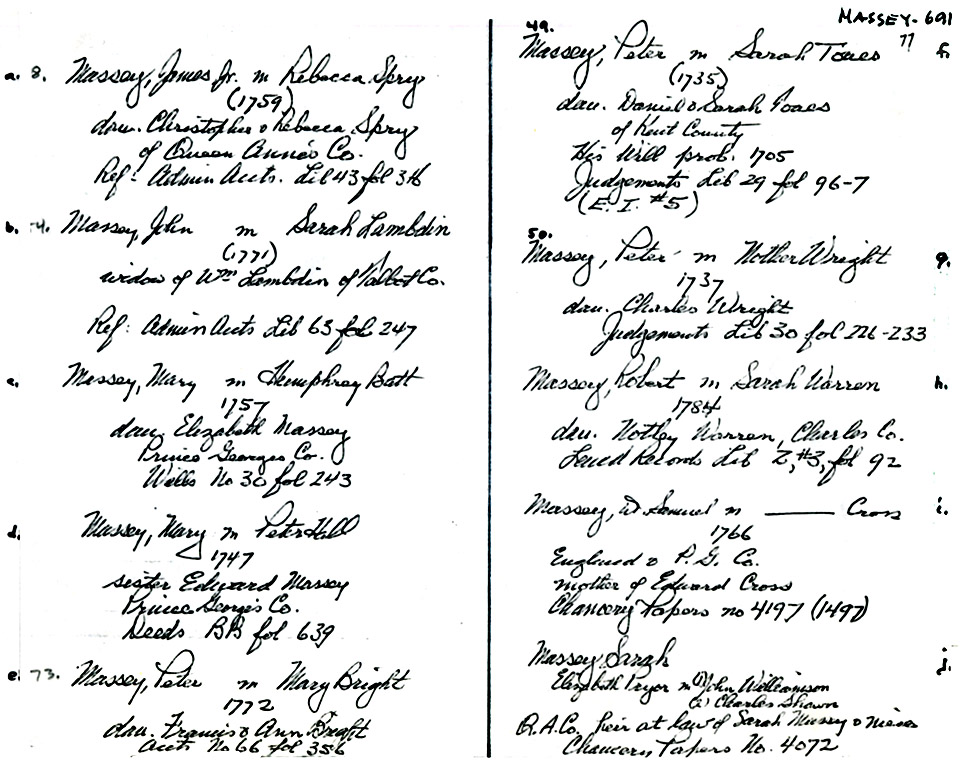 MASSEY-691
77
a. 8. Massey, James Jr. m Rebecca Spry
(1759)
dau. Christopher & Rebecca Spry
of Queen Anne's Co.
Ref: Admin Accts. Lib 43 fol 316
b. 4. Massey, John m Sarah Lambdin
(1771)
widow of Wm Lambdin of Talbot Co.
Ref: Admin Accts Lib 63 fol 247
c. Massey, Mary m Humphrey Batt
1757
dau. Elizabeth Massey
Prince Georges Co.
Wills No 30 fol 243
d. Massey, Mary m Peter Hill
1747
sister Edward Massey
Prince Georges Co.
Deeds BB fol 639
e. 73. Massey, Peter m Mary Bright
1772
dau. Francis & Ann Bright
Accts No 66 fol 356
49.
Massey, Peter m Sarah Toaes f.
(1735)
dau. Daniel & Sarah Toaes
of Kent County
His Will prob. 1705
Judgements Lib 29 fol 96-7
(E. I. #5)
50.
Massey, Peter m Nother Wright g.
1737
dau. Charles Wright
Judgements Lib 30 fol 226-233
Massey, Robert m Sarah Warren h.
1784
dau. Notley Warren, Charles Co.
Land Records Lib Z, #3, fol 92
Massey, Samuel m ——— Cross i.
1766
England & P. G. Co.
mother of Edward Cross
Chancery Papers no 4197 (1497)
Massey, Sarah j.
Elizabeth Pryor m (1) John Williamson
(2) Charles Shawn
Q.A.Co. heir at law of Sarah Massey & niece
Chancery Papers No. 4072